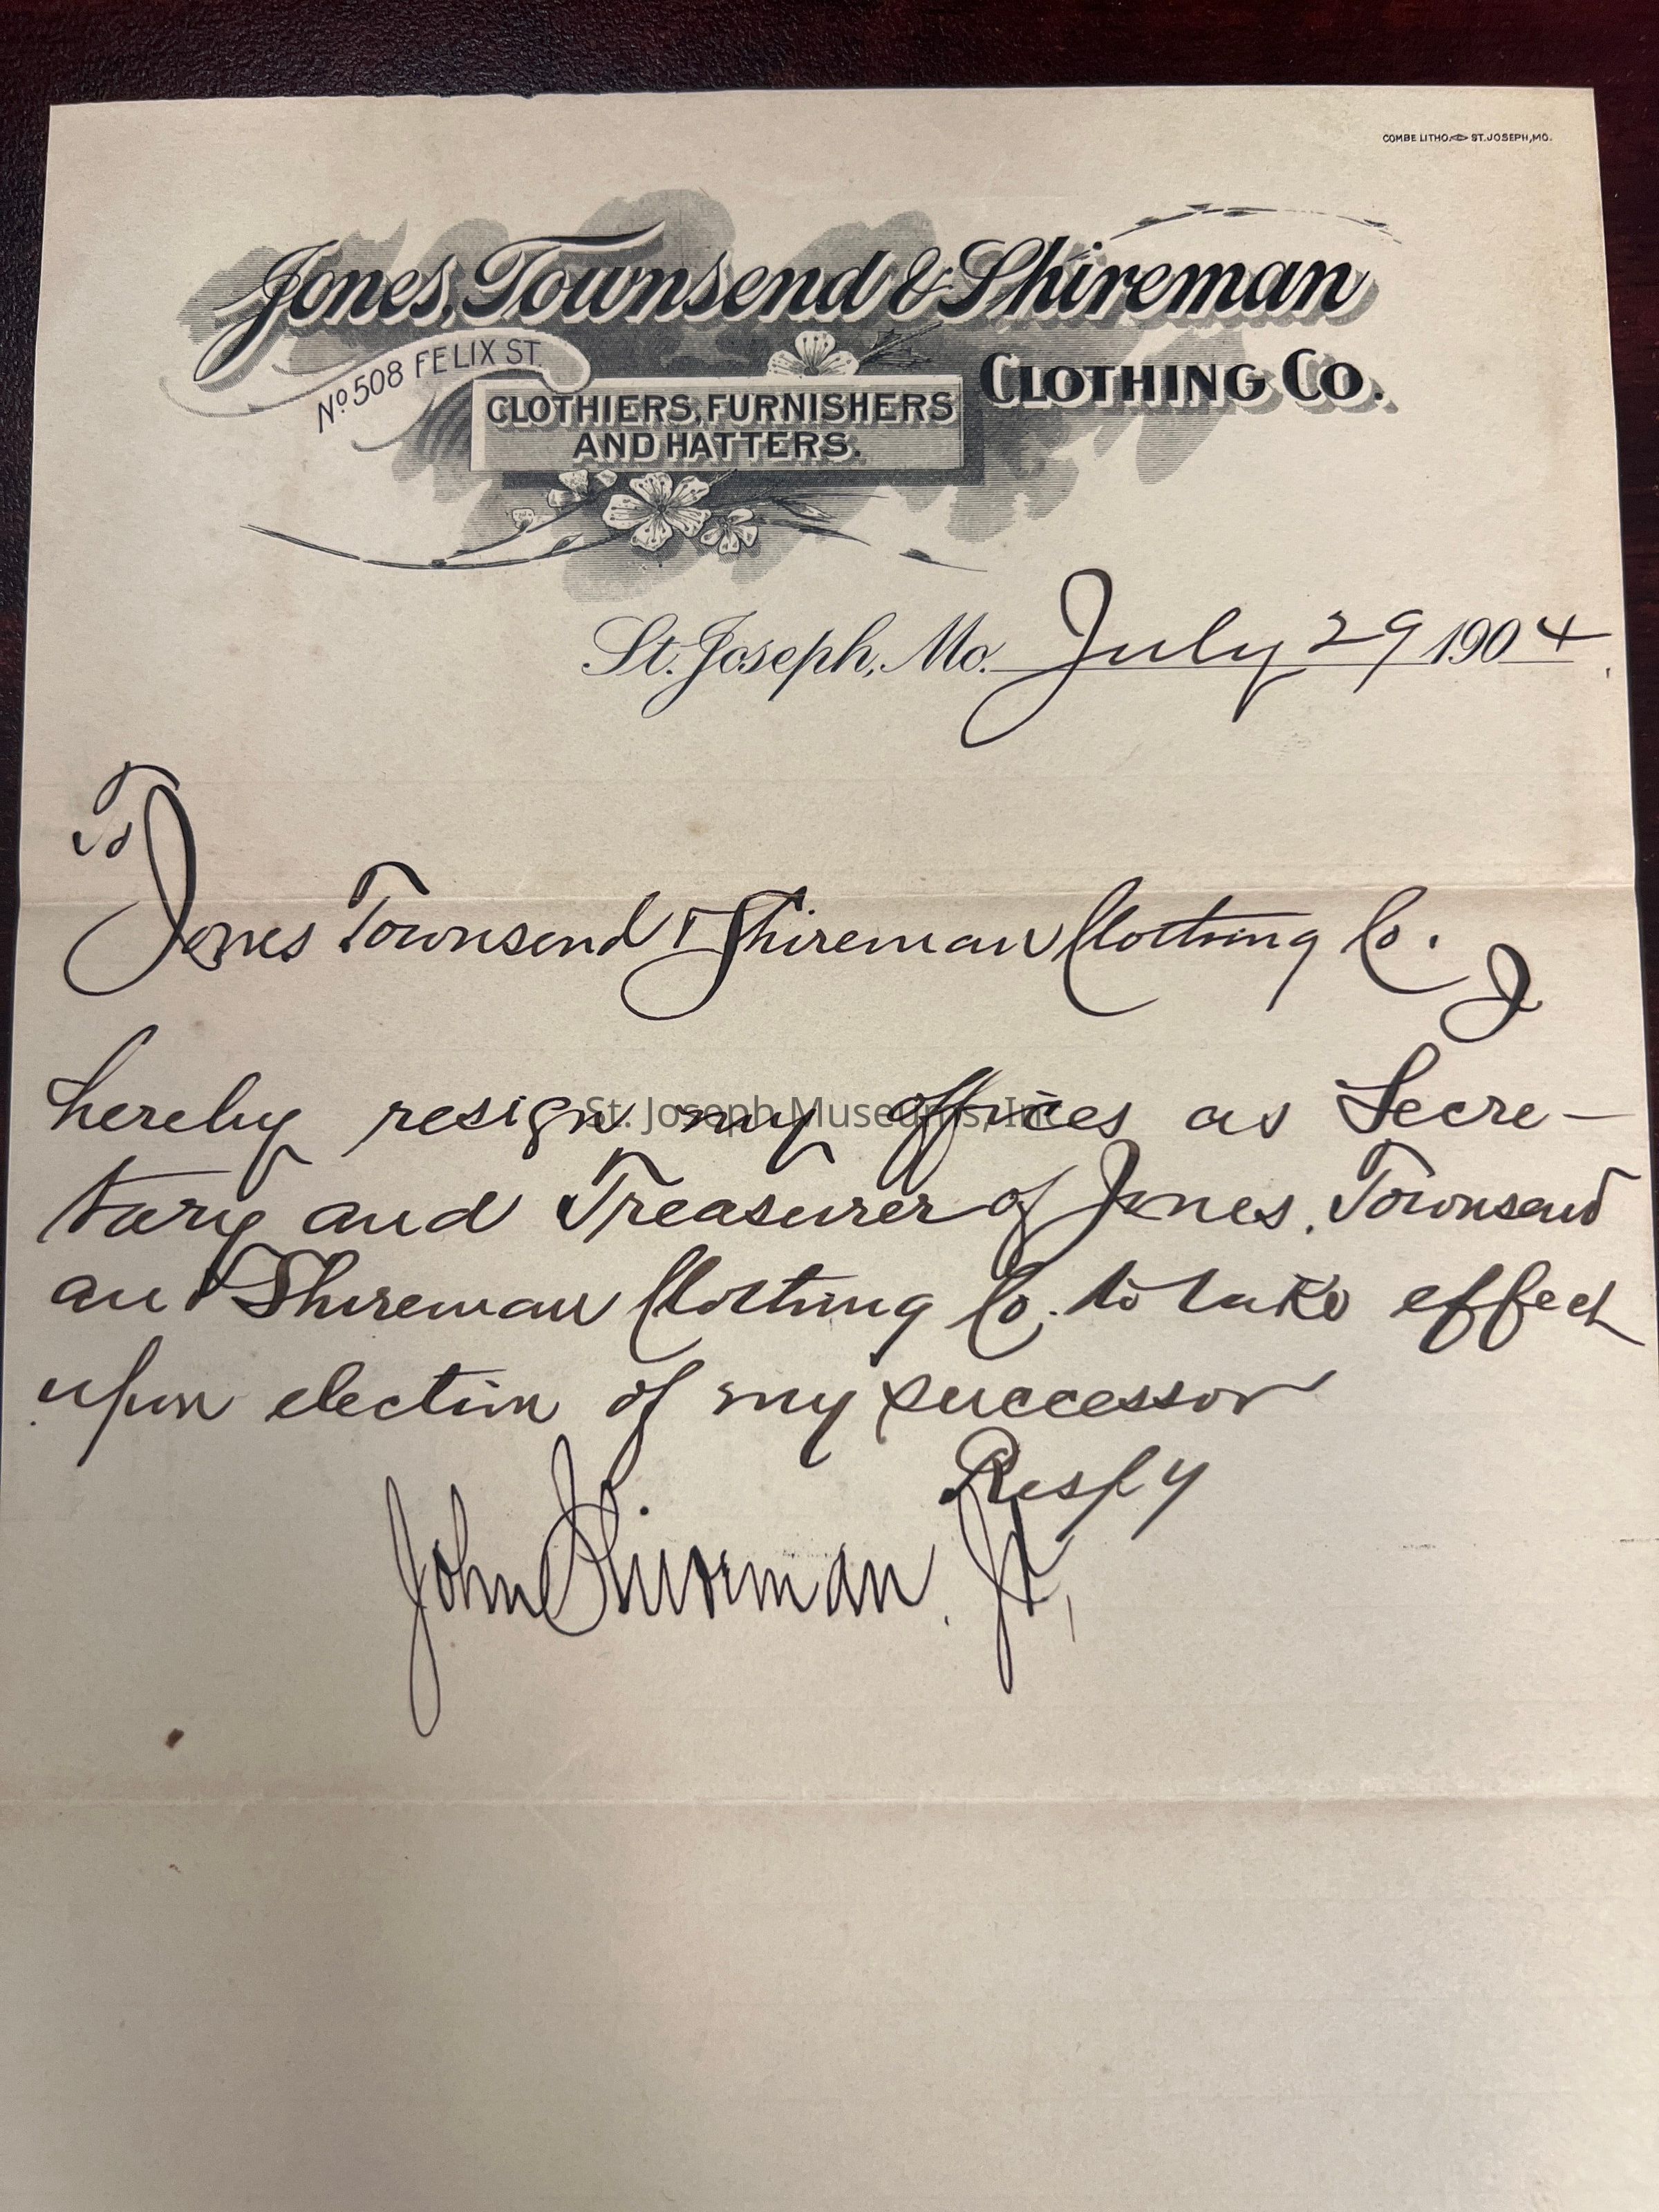 COMBE LITHO. ST. JOSEPH, MO.
Jones, Townsend & Shireman
No 508 FELIX ST.
CLOTHING CO.
CLOTHIERS, FURNISHERS
AND HATTERS.
St. Joseph, Mo. July 29 1904
To
Jones Townsend & Shireman Clothing Co.
I
hereby resign my offices as Secre-
tary and Treasurer of Jones, Townsend
and Shireman Clothing Co. to take effect
upon election of my successor
Respy
John Shireman. Jr,
St. Joseph Museums, Inc.